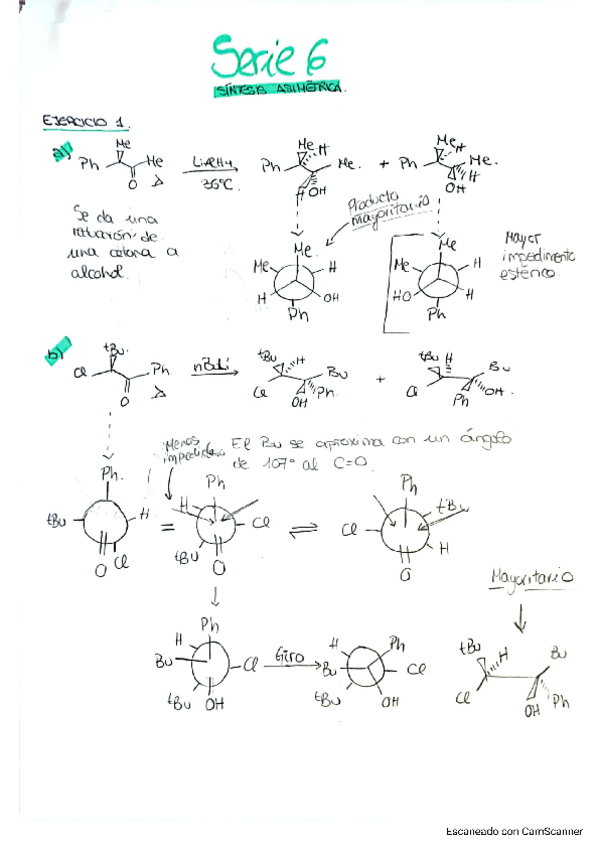 Serie 6
SÍNTESIS ASIMÉTRICA.
EJERCICIO 1.
a)
Me
Ph
Me
O
LiAlH4
36ºC.
Me H
Ph
Me.
OH
+
Me H
Ph
Me.
H
OH
Se da una
reducción de
una cetona a
alcohol.
Producto
mayoritario
Me
Me
H
H
OH
Ph
Me
Me
H
HO
H
Ph
Mayor
impedimento
estérico.
b)
tBu
Cl
Ph
O
nBuLi
tBu H
Bu
Cl
OH Ph.
+
tBu H
Bu
Cl
Ph
OH.
Menos
impedido
El Bu se aproxima con un ángulo
de 107º al C=O.
Ph.
tBu
H
O Cl
=
Ph
H
Cl
tBu
O
⇌
Ph
tBu
Cl
H
O
Mayoritario
Ph
H
Bu
Cl
tBu OH
Giro
H
Ph
Bu
Cl
tBu
OH
tBu
H
Bu
Cl
OH
Ph
Escaneado con CamScanner